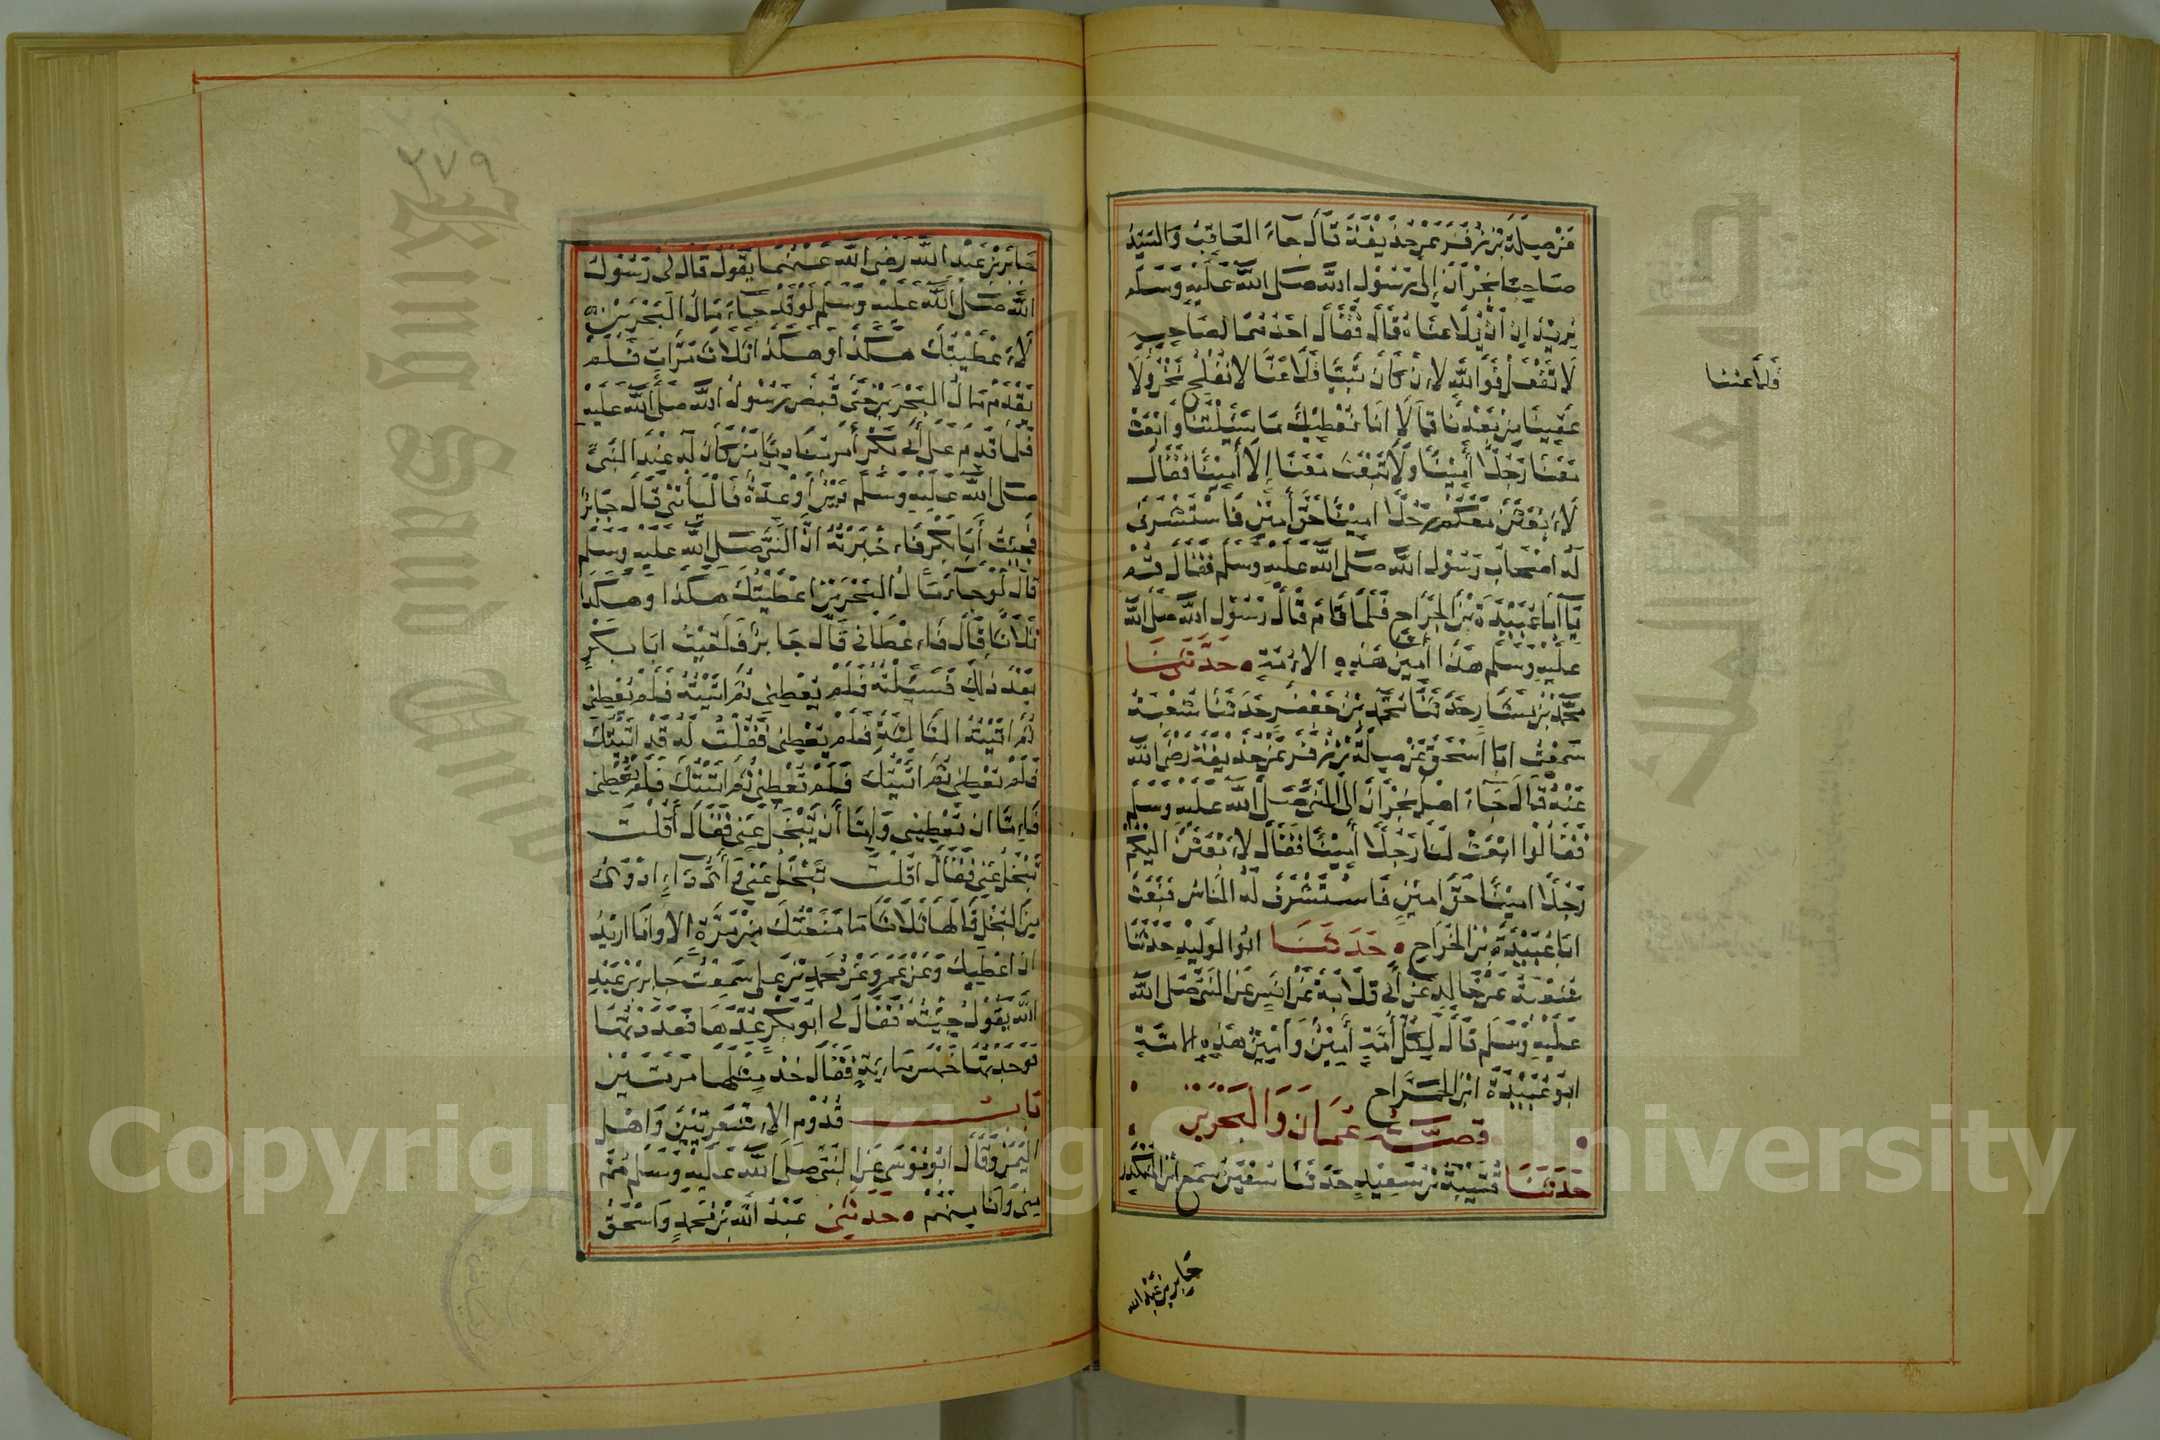 عن صلة بن زفر عن حذيفة قال جاء العاقب والسيد
صاحبا نجران إلى رسول الله صلى الله عليه وسلم
يريدان أن يلاعناه قال فقال احدهما لصاحبه
لا تفعل فوالله لان كان نبيا فلاعنا لا نفلح نحن ولا
عقبنا من بعدنا قالا انا نعطيك ما سئيلتنا وابعث
معنا رجلا أمينا ولا تبعث معنا إلا أمينا فقال
لابعثن معكم رجلا امينا حق أمين فاستشرف
له اصحاب رسول الله صلى الله عليه وسلم فقال قم
يا أبا عبيدة بن الجراح فلما قام قال رسول الله صلى الله
عليه وسلم هذا أمين هذه الامة حدثنا
محمد بن بشار حدثنا محمد بن جعفر حدثنا شعبة
سمعت ابا اسحق عن صلة بن زفر عن حذيفة رضى الله
عنه قال جاء اهل نجران الى النبى صلى الله عليه وسلم
فقالوا ابعث لنا رجلا أمينا فقال لابعثن اليكم
رجلا امينا حق امين فاستشرف له الناس فبعث
ابا عبيدة بن الجراح حدثنا ابوا لوليد حدثنا
شعبة عن خالد عن أبى قلابة عن انس عن النبى صلى الله
عليه وسلم قال لكل أمة أمين وأمين هذه الامة
ابو عبيدة ابن الجراح
قصة عمان والبحرين
حدثنا قتيبة بن سعيد حدثنا سفين سمع ابن المنكدر
فلاعننا
جابر بن عبد الله
٢٧٩
جابر بن عبد الله رضى الله عنهما يقول قال لى رسول
الله صلى الله عليه وسلم لو قد جاء مال البحرين
لاعطيتك هكذا وهكذا ثلاث مرات فلم
يقدم مال البحرين حتى قبض رسول الله صلى الله عليه
فلما قدم على أبى بكر أمر مناديا من كان له عند النبى
صلى الله عليه وسلم دين أو عدة فاليأتنى قال جابر
فجئت أبا بكر فاخبرته ان النبى صلى الله عليه وسلم
قال لو جاء مال البحرين اعطيتك هكذا وهكذا
ثلاثا قال فاعطانى قال جابر فلقيت ابا بكر
بعد ذلك فسئلته فلم يعطنى ثم اتيته فلم يعطنى
ثم اتيته الثالثة فلم يعطنى فقلت له قد اتيتك
فلم تعطنى ثم اتيتك فلم تعطنى ثم اتيتك فلم تعطنى
فاما ان تعطينى واما أن تبخل عنى فقال أقلت
تبخل عنى فقال اقلت تبخل عنى وأى داء ادوى
من البخل قالها ثلاثا ما منعتك من مرة الا وانا اريد
ان اعطيك وعن عمرو عن محمد بن على سمعت جابر بن عبد
الله يقول جئته فقال لى ابو بكر عدها فعددتها
فوجدتها خمس مائة فقال خذ مثلها مرتين
باب قدوم الاشعريين واهل
اليمن وقال ابو موسى عن النبى صلى الله عليه وسلم هم
منى وانا منهم حدثنى عبد الله بن محمد واسحق
King Saud University
Copyright © King Saud University